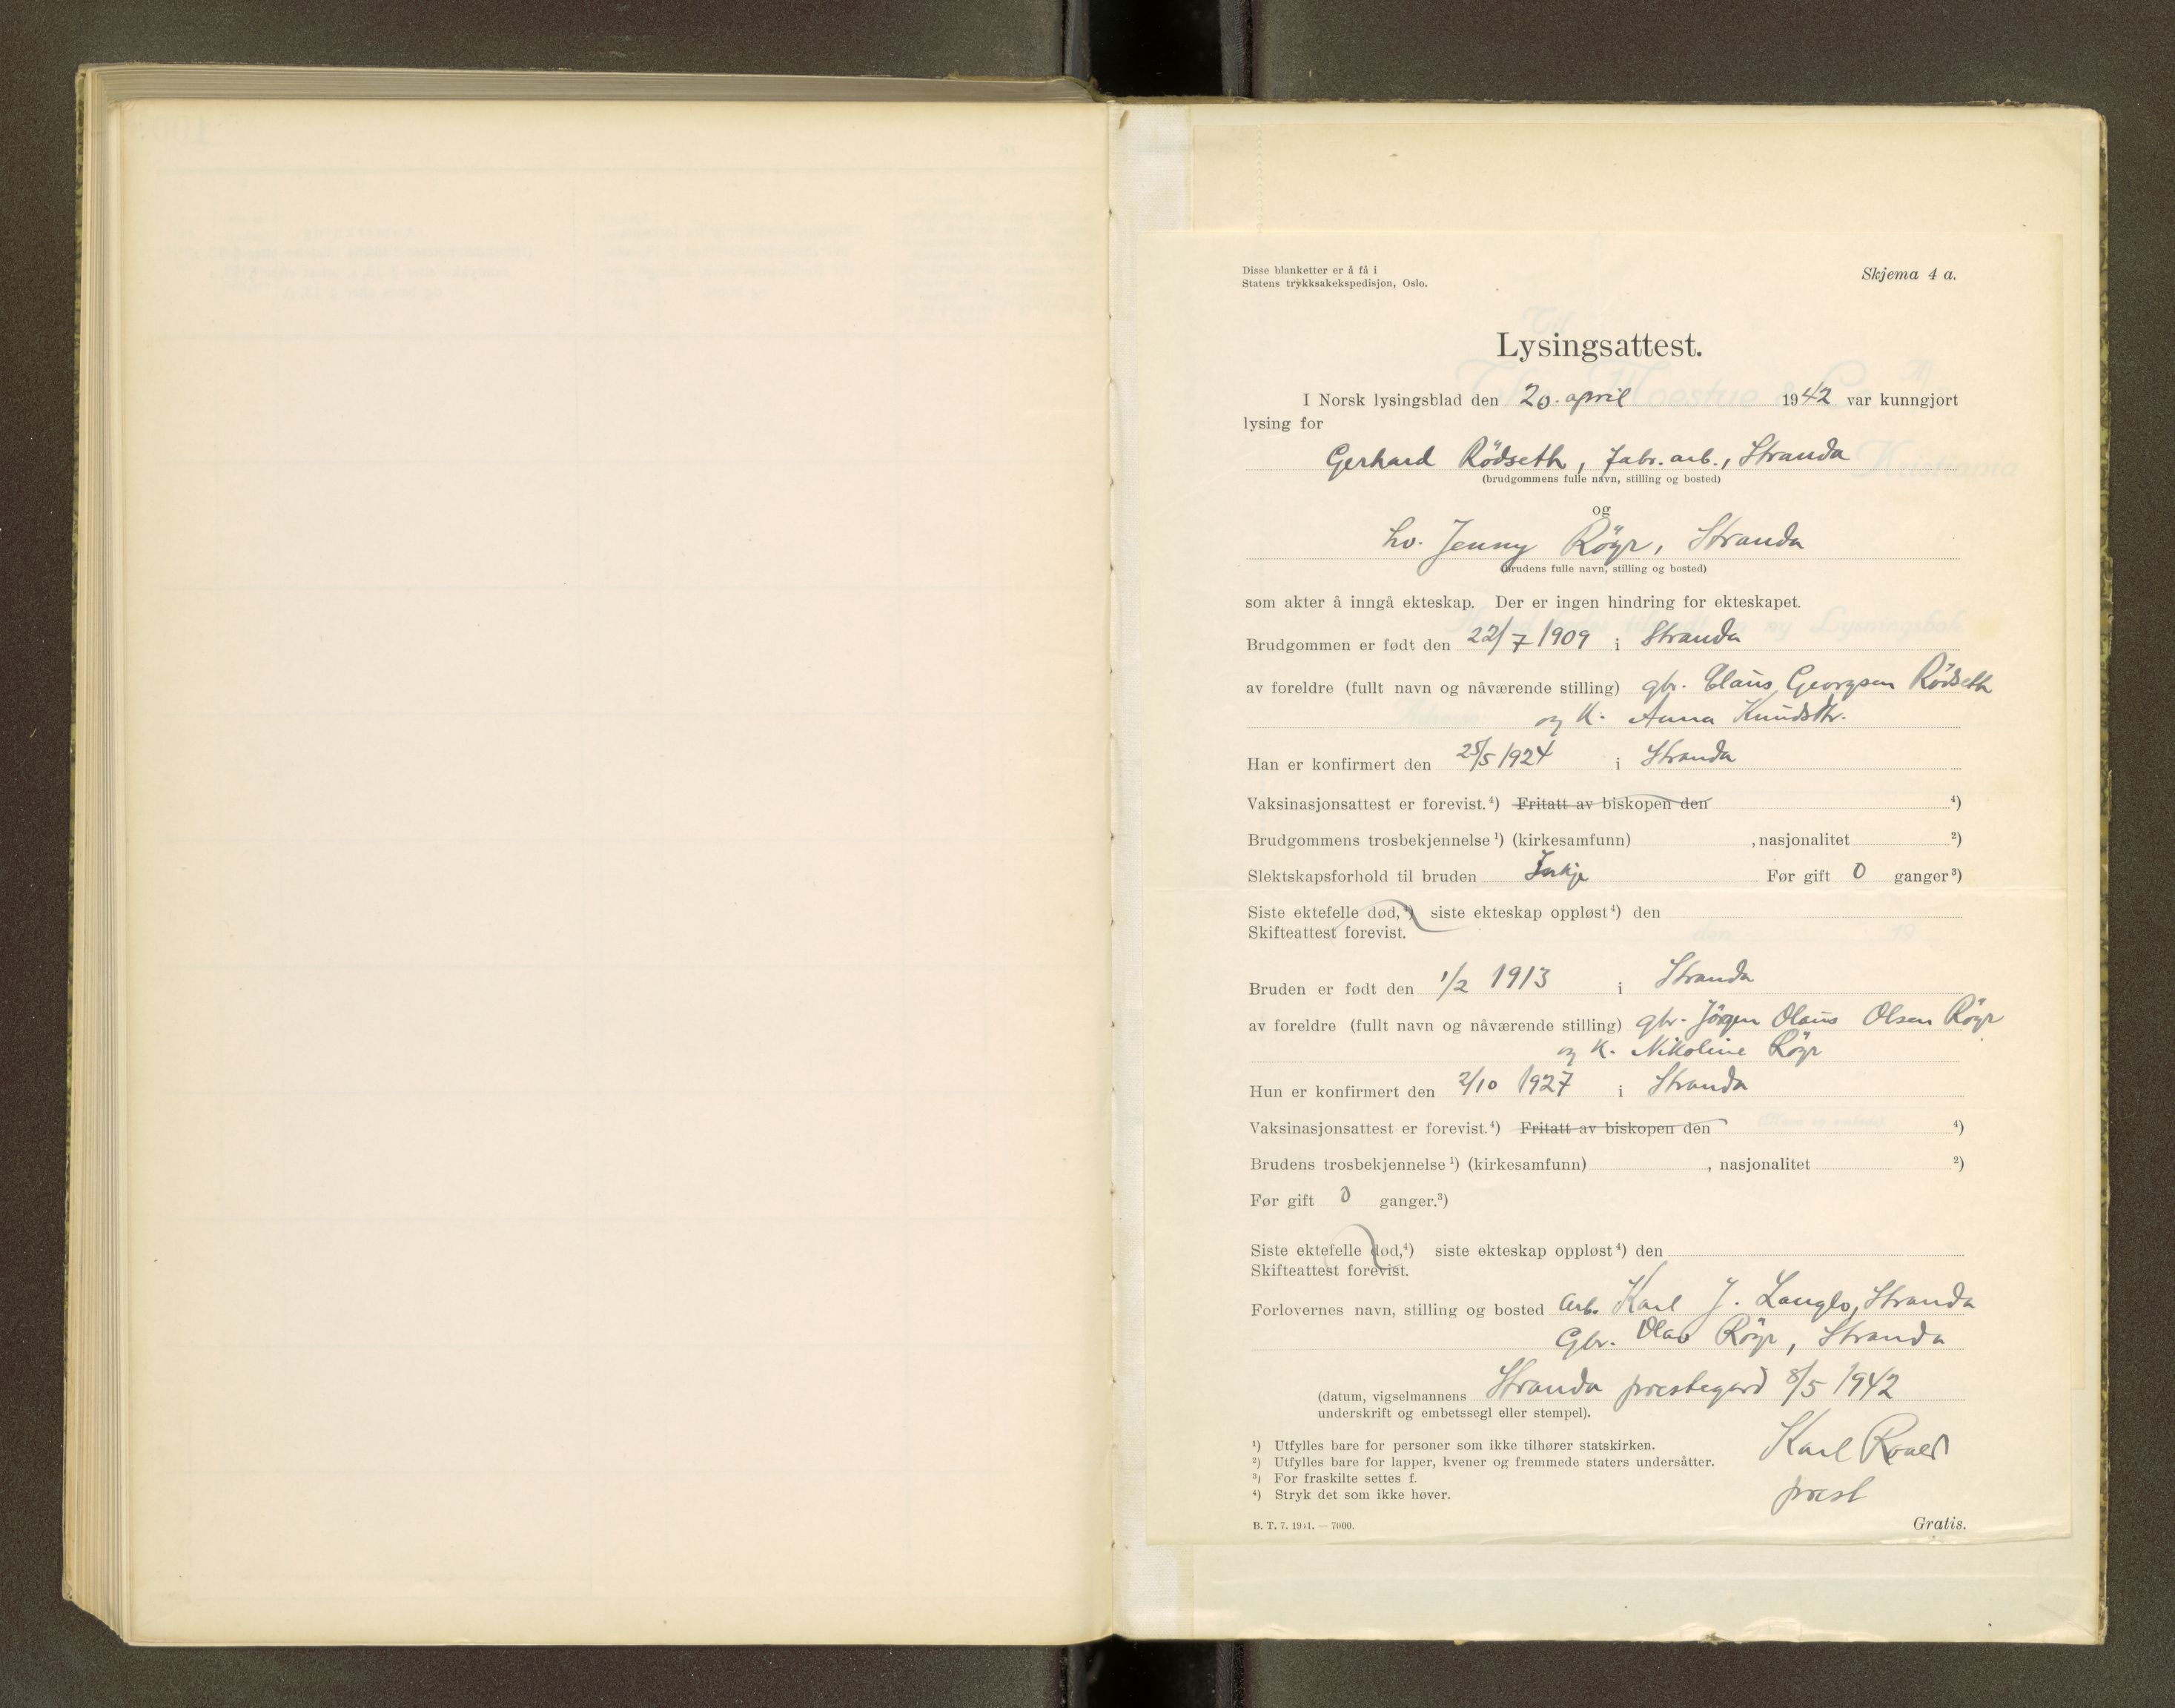 Disse blanketter er å få i
Statens trykksakekspedisjon, Oslo.
Skjema 4 a.
Lysingsattest.
I Norsk lysingsblad den 20. april 1942 var kunngjort
lysing for
Gerhard Rödseth, fabr. arb., Stranda
(brudgommens fulle navn, stilling og bosted)
og
hv. Jenny Röyr, Stranda
(brudens fulle navn, stilling og bosted)
som akter å inngå ekteskap. Der er ingen hindring for ekteskapet.
Brudgommen er født den 22/7 1909 i Stranda
av foreldre (fullt navn og nåværende stilling) gbr. Claus Georgsen Rödseth
og K. Anna Knudsdtr.
Han er konfirmert den 25/5 1924 i Stranda
Vaksinasjonsattest er forevist.⁴) Fritatt av biskopen den ⁴)
Brudgommens trosbekjennelse¹) (kirkesamfunn) , nasjonalitet ²)
Slektskapsforhold til bruden Inkje Før gift 0 ganger³)
Siste ektefelle død,⁴) siste ekteskap oppløst⁴) den
Skifteattest forevist.
Bruden er født den 1/2 1913 i Stranda
av foreldre (fullt navn og nåværende stilling) gbr. Jörgen Olaus Olsen Röyr
og K. Nikoline Röyr
Hun er konfirmert den 2/10 1927 i Stranda
Vaksinasjonsattest er forevist.⁴) Fritatt av biskopen den ⁴)
Brudens trosbekjennelse¹) (kirkesamfunn) , nasjonalitet ²)
Før gift 0 ganger.³)
Siste ektefelle død,⁴) siste ekteskap oppløst⁴) den
Skifteattest forevist.
Forlovernes navn, stilling og bosted Arb. Karl J. Langlo, Stranda
Gbr. Olav Röyr, Stranda
(datum, vigselmannens Stranda prestegard 8/5 1942
underskrift og embetssegl eller stempel).
Karl Roald
prest
¹) Utfylles bare for personer som ikke tilhører statskirken.
²) Utfylles bare for lapper, kvener og fremmede staters undersåtter.
³) For fraskilte settes f.
⁴) Stryk det som ikke høver.
B. T. 7. 1941. — 7000.
Gratis.